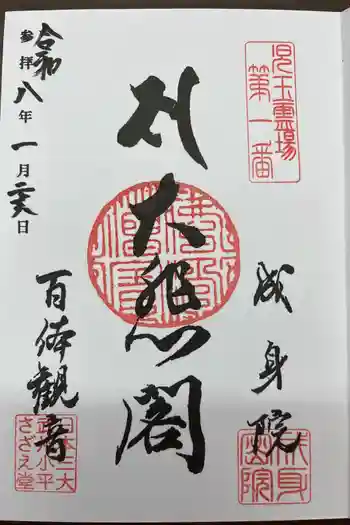 兒玉霊場
第一番
成身院
成身院
大悲閣
百体觀音
日本三大
武州小平
さざえ堂
令和八年一月二六日
参拝